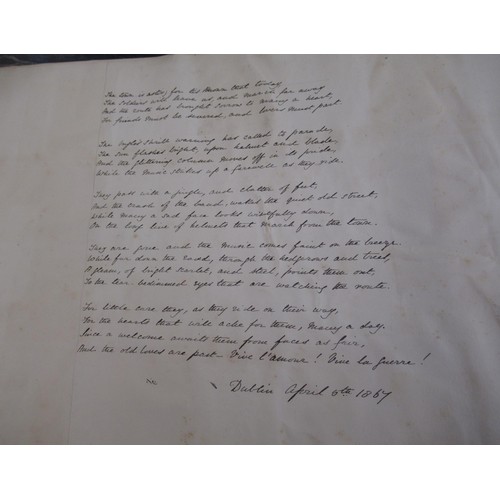 The town is astir, for its known that today
The soldiers will leave us, and march far away
And the route has brought sorrow to many a heart,
For friends must be severed, and lovers must part.
The bugles shrill warning has called to parade,
The sun flashes bright, upon helmet and blade,
And the glittering column moves off in its pride,
While the music strikes up a farewell as they ride.
They pass with a jingle, and clatter of feet,
And the crash of the band, wakes the quiet old street,
While many a sad face looks wistfully down,
On the long line of helmets that march from the town.
They are gone and the music comes faint on the breeze
While far down the road, through the hedgerows and trees,
A gleam, of bright scarlet, and steel, points them out
To the tear bedimmed eyes that are watching the route
For little care they, as they ride on their way,
For the hearts that will ache for them, many a day.
Since a welcome awaits them from faces as fair,
And the old loves are past - Vive l'amour! Vive la guerre!
Dublin April 6th 1867